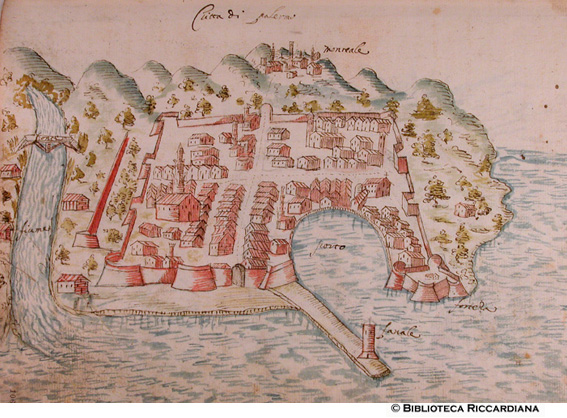 Citta di palermo
monreale
fiume
porto
fanale
© BIBLIOTECA RICCARDIANA